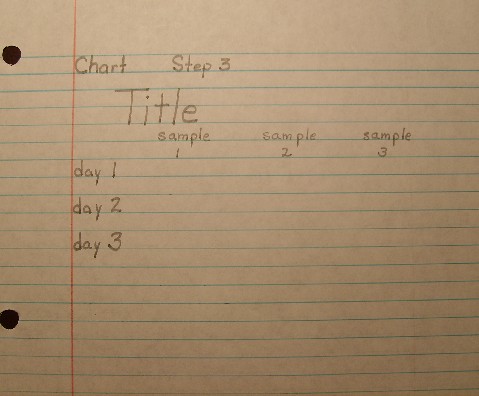 Chart Step 3
Title
sample sample sample
1 2 3
day 1
day 2
day 3